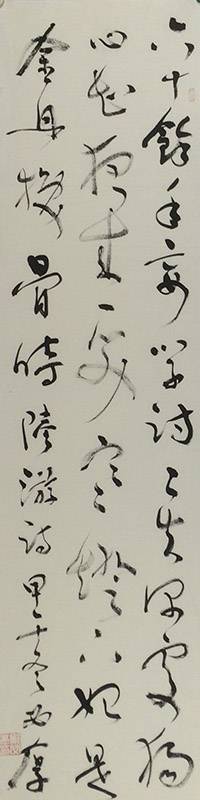 六十餘年妄學詩工夫深處獨
心知夜來一笑寒燈下始是
金丹換骨時陸游詩甲午冬厚